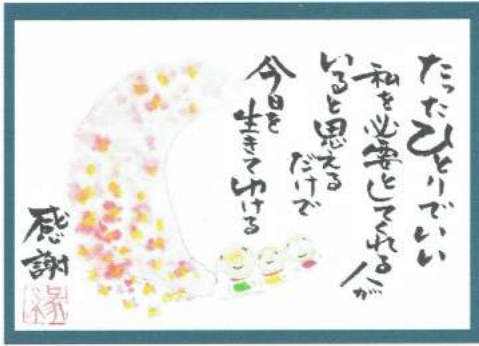 たったひとりでいい
私を必要としてくれる人が
いると思える
だけで
今日を
生きてゆける
感謝
縁